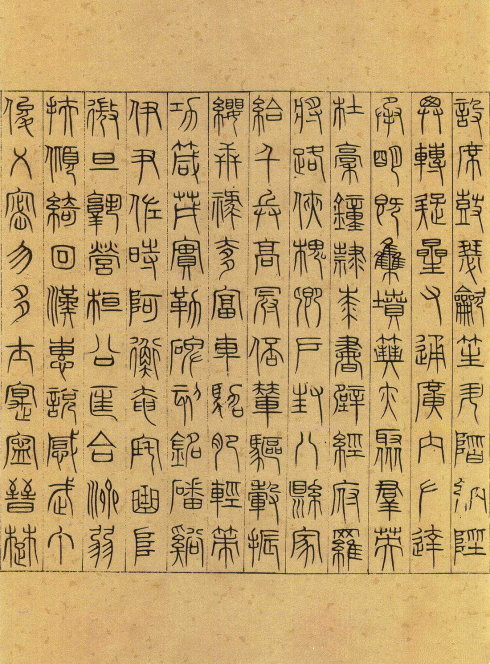 設席鼓瑟龡笙升階納陛
弁轉疑星右通廣內左達
承明既集墳典亦聚群英
杜稾鐘隸漆書壁經府羅
將路俠槐卿戶封八縣家
給千兵高冠陪輦驅轂振
纓世祿侈富車駕肥輕策
功茂實勒碑刻銘磻谿
伊尹佐時阿衡奄宅曲阜
微旦孰營桓公匡合濟弱
扶傾綺回漢惠說感武丁
俊乂密勿多士寔寧晉楚